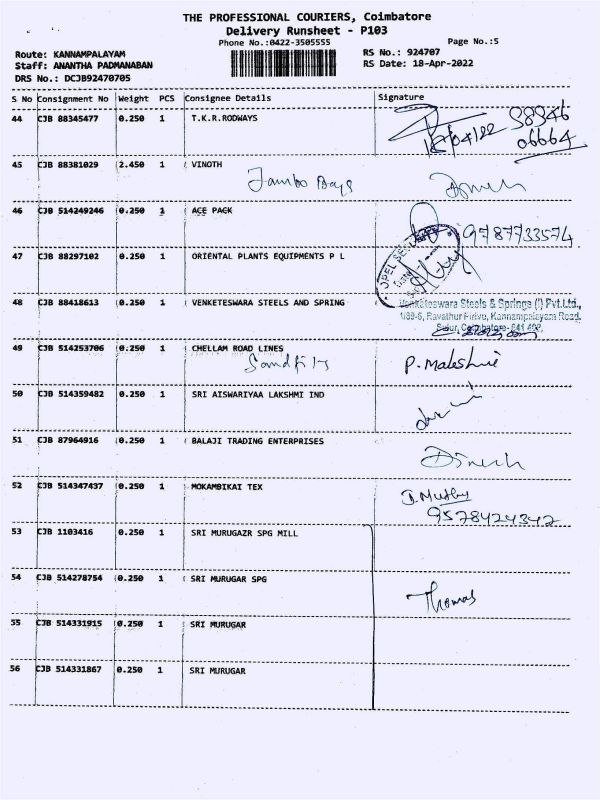 THE PROFESSIONAL COURIERS, Coimbatore
Delivery Runsheet - P103
Phone No.:0422-3505555
Page No.:5
Route: KANNAMPALAYAM
RS No.: 924707
Staff: ANANTHA PADMANABAN
RS Date: 18-Apr-2022
DRS No.: DCJB92470705
S No Consignment No Weight PCS Consignee Details Signature
44 CJB 88345477 0.250 1 T.K.R.RODWAYS
98946
06664
45 CJB 88381029 2.450 1 VINOTH
Jambo Bags Dinesh
46 CJB 514249246 0.250 1 ACE PACK
9787733574
47 CJB 88297102 0.250 1 ORIENTAL PLANTS EQUIPMENTS P L
48 CJB 88418613 0.250 1 VENKETESWARA STEELS AND SPRING
Venkateswara Steels & Springs (I) Pvt.Ltd.,
1/89-6, Ravathur Pirivu, Kannampalayam Road,
Sulur, Coimbatore- 641 402.
49 CJB 514253706 0.250 1 CHELLAM ROAD LINES
50 CJB 514359482 0.250 1 SRI AISWARIYAA LAKSHMI IND
51 CJB 87964916 0.250 1 BALAJI TRADING ENTERPRISES
Dinesh
52 CJB 514347437 0.250 1 MOKAMBIKAI TEX
9578424342
53 CJB 1103416 0.250 1 SRI MURUGAZR SPG MILL
54 CJB 514278754 0.250 1 SRI MURUGAR SPG
Thomas
55 CJB 514331915 0.250 1 SRI MURUGAR
56 CJB 514331867 0.250 1 SRI MURUGAR